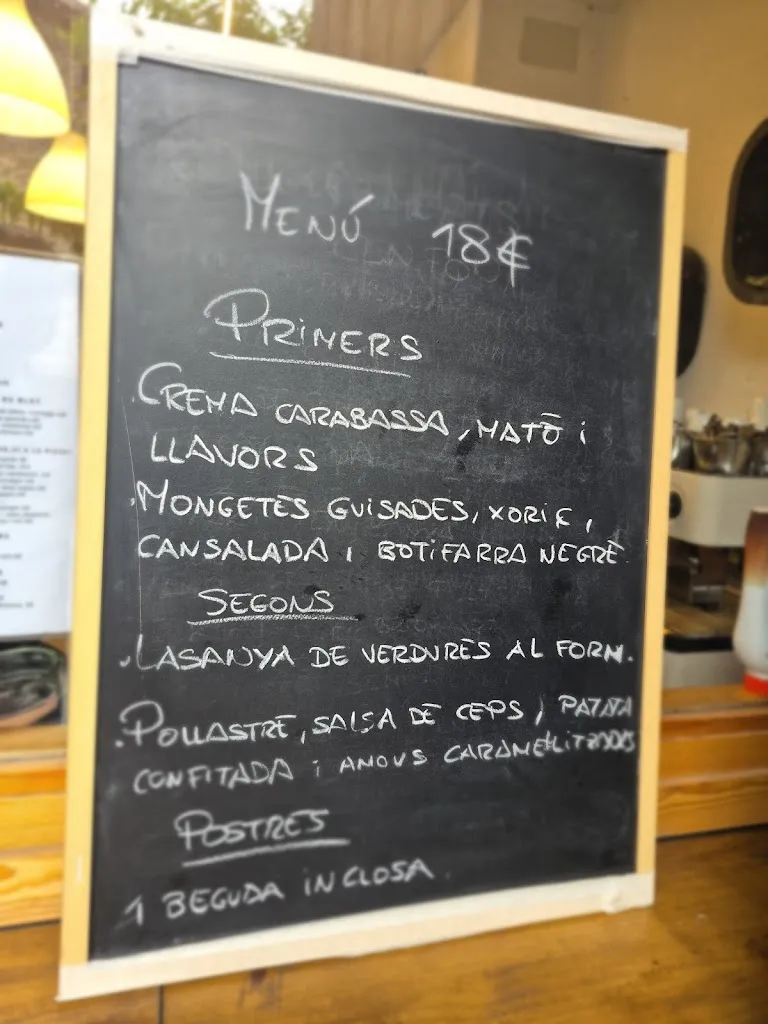 MENÚ 18€
PRIMERS
CREMA CARABASSA, MATÓ i
LLAVORS
MONGETES GUISADES, XORIÇ,
CANSALADA i BOTIFARRA NEGRE
SEGONS
LASANYA DE VERDURES AL FORN.
POLLASTRE, SALSA DE CEPS, PATATA
CONFITADA i ANOUS CARAMEL·LITZADES
POSTRES
1 BEGUDA INCLOSA